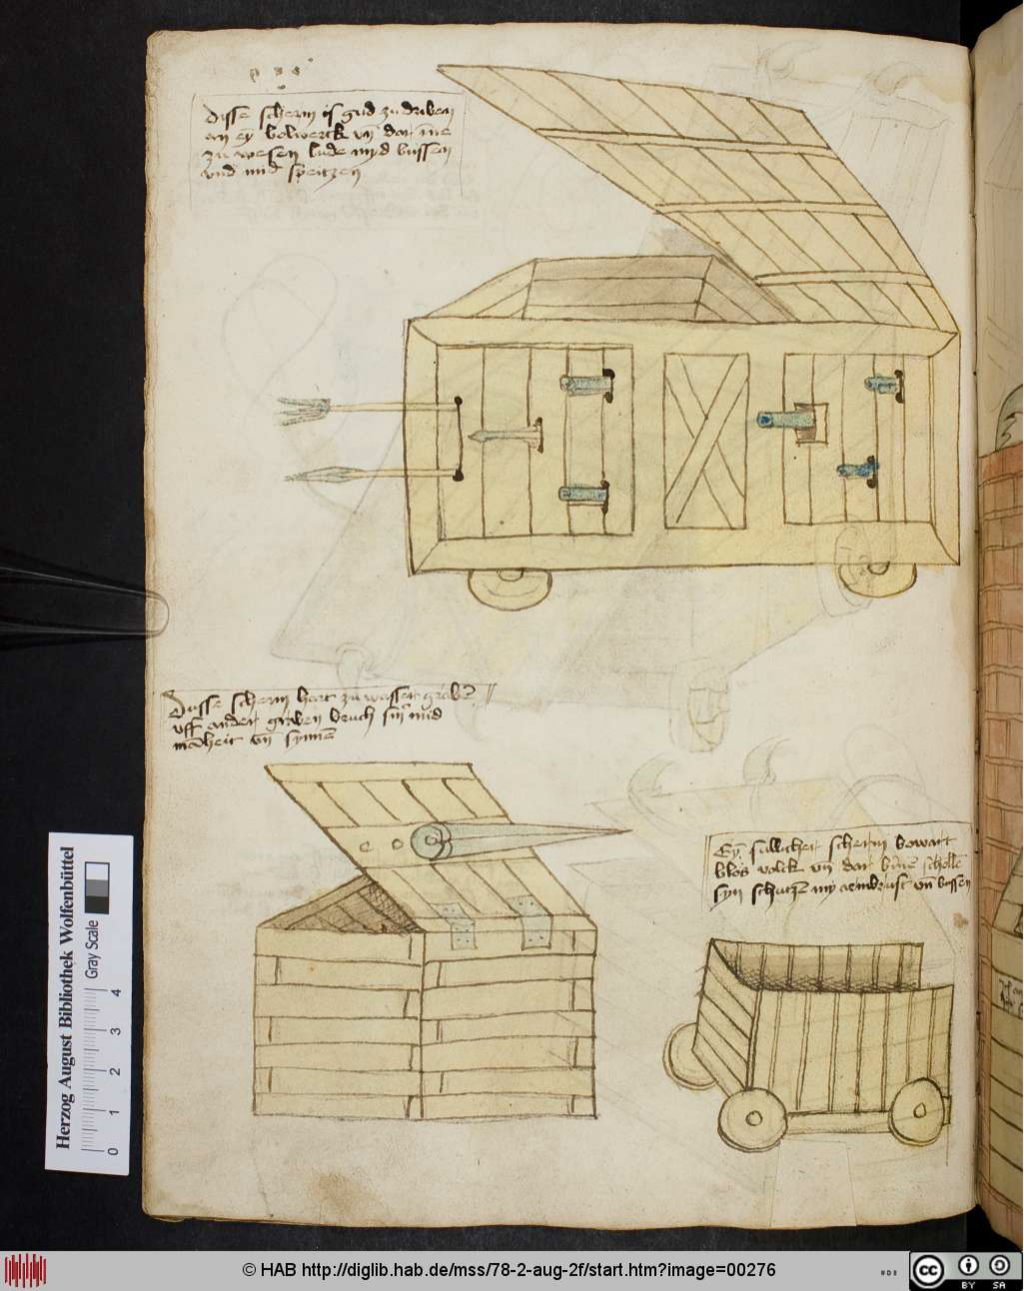 Disse scherm is gud zu driben
an ey bolwerck vn dar ine
zu wesen lude myd bussen
vnd mid speitzen
Dusse scherm hort zu wasser grabē
vff ander graben bruch sin mid
vn synne
Ey sullicher scherm bewart
blos volck vn dar schollē
syn schutzē my armbrust vn bussen
Herzog August Bibliothek Wolfenbüttel
Gray Scale
0 1 2 3 4
© HAB http://diglib.hab.de/mss/78-2-aug-2f/start.htm?image=00276
cc BY SA